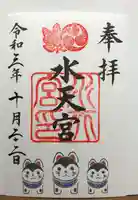 奉拝
水天宮
令和三年十月二十二日